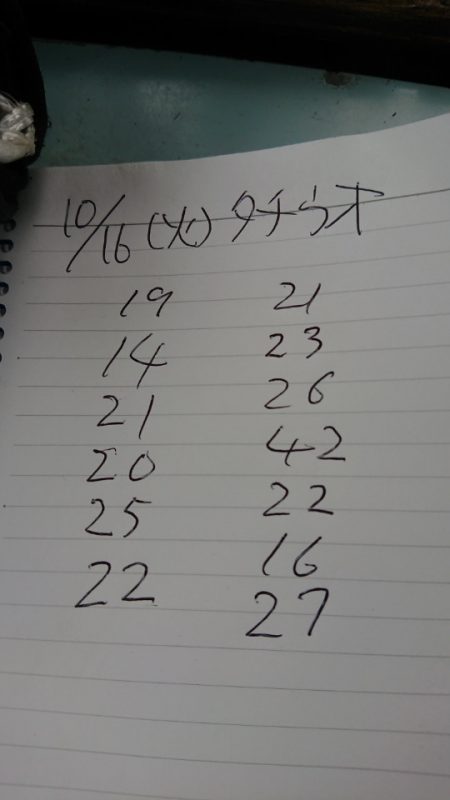 10/16(火) タチウオ
19 21
14 23
21 26
20 42
25 22
22 16
27